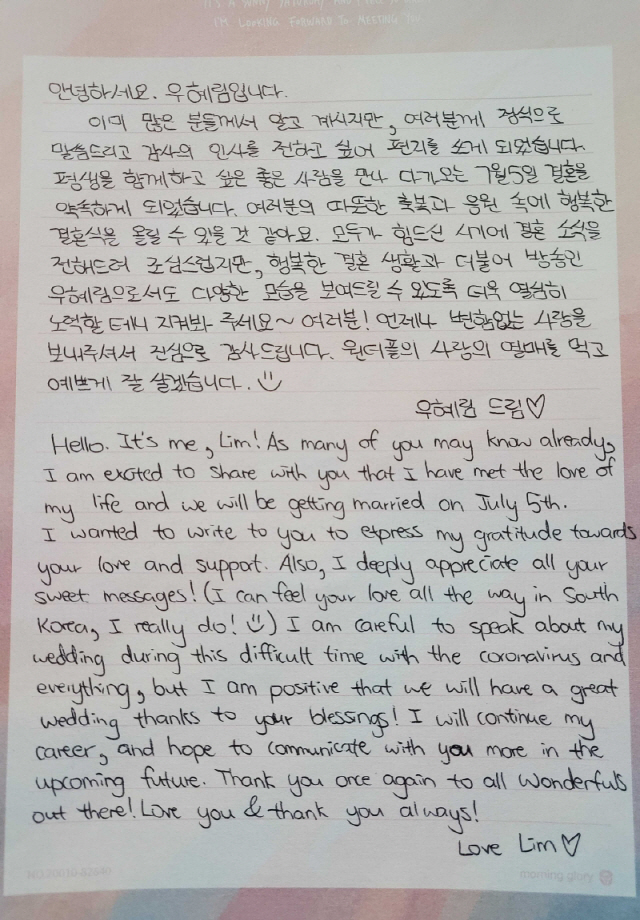 I'M LOOKING FORWARD TO MEETING
안녕하세요. 우혜림입니다.
이미 많은 분들께서 알고 계시지만, 여러분께 정식으로
말씀드리고 감사의 인사를 전하고 싶어 편지를 쓰게 되었습니다.
평생을 함께하고 싶은 좋은 사람을 만나 다가오는 7월5일 결혼을
약속하게 되었습니다. 여러분의 따뜻한 축복과 응원 속에 행복한
결혼식을 올릴 수 있을 것 같아요. 모두가 힘드신 시기에 결혼 소식을
전해드려 조심스럽지만, 행복한 결혼 생활과 더불어 방송인
우혜림으로서도 다양한 모습을 보여드릴 수 있도록 더욱 열심히
노력할 테니 지켜봐 주세요~ 여러분! 언제나 변함없는 사랑을
보내주셔서 진심으로 감사드립니다. 원더풀의 사랑의 열매를 먹고
예쁘게 잘 살겠습니다. :)
우혜림 드림♡
Hello. It's me, Lim! As many of you may know already,
I am excited to share with you that I have met the love of
my life and we will be getting married on July 5th.
I wanted to write to you to express my gratitude towards
your love and support. Also, I deeply appreciate all your
sweet messages! (I can feel your love all the way in South
Korea, I really do! :)) I am careful to speak about my
wedding during this difficult time with the coronavirus and
everything, but I am positive that we will have a great
wedding thanks to your blessings! I will continue my
career, and hope to communicate with you more in the
upcoming future. Thank you once again to all Wonderfuls
out there! Love you & thank you always!
Love Lim♡
morning glory